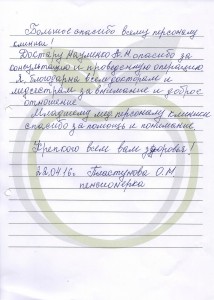 Большое спасибо всему персоналу
клиники!
Доктору Науменко А.Н спасибо за
консультацию и проведенную операцию
Я благодарна всем докторам и
медсестрам за внимание и доброе
отношение
Младшему мед персоналу клиники
спасибо за помощь и понимание.
Крепкого всем вам здоровья!
28.04 16г. Пластунова О.М
пенсионерка